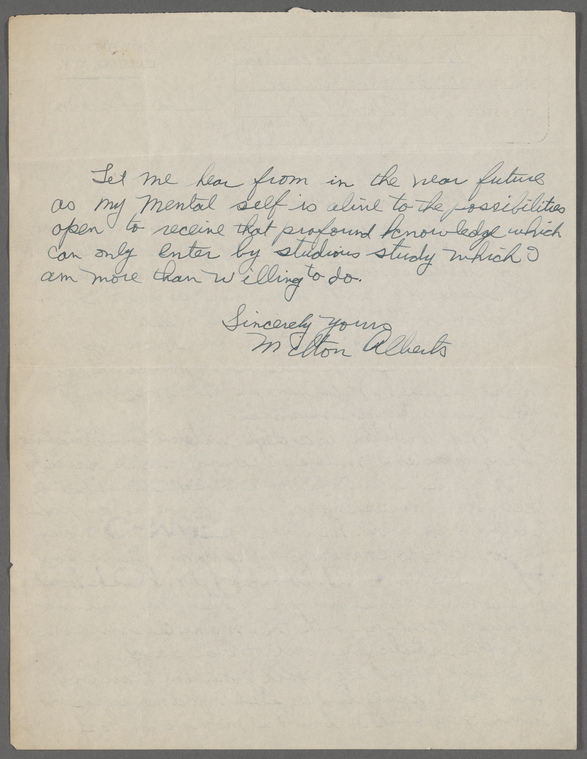 Let me hear from in the near future
as my Mental self is alive to the possibilities
open to receive that profound knowledge which
can only enter by studious study which I
am more than willing to do.
Sincerely Yours
Milton Alberts